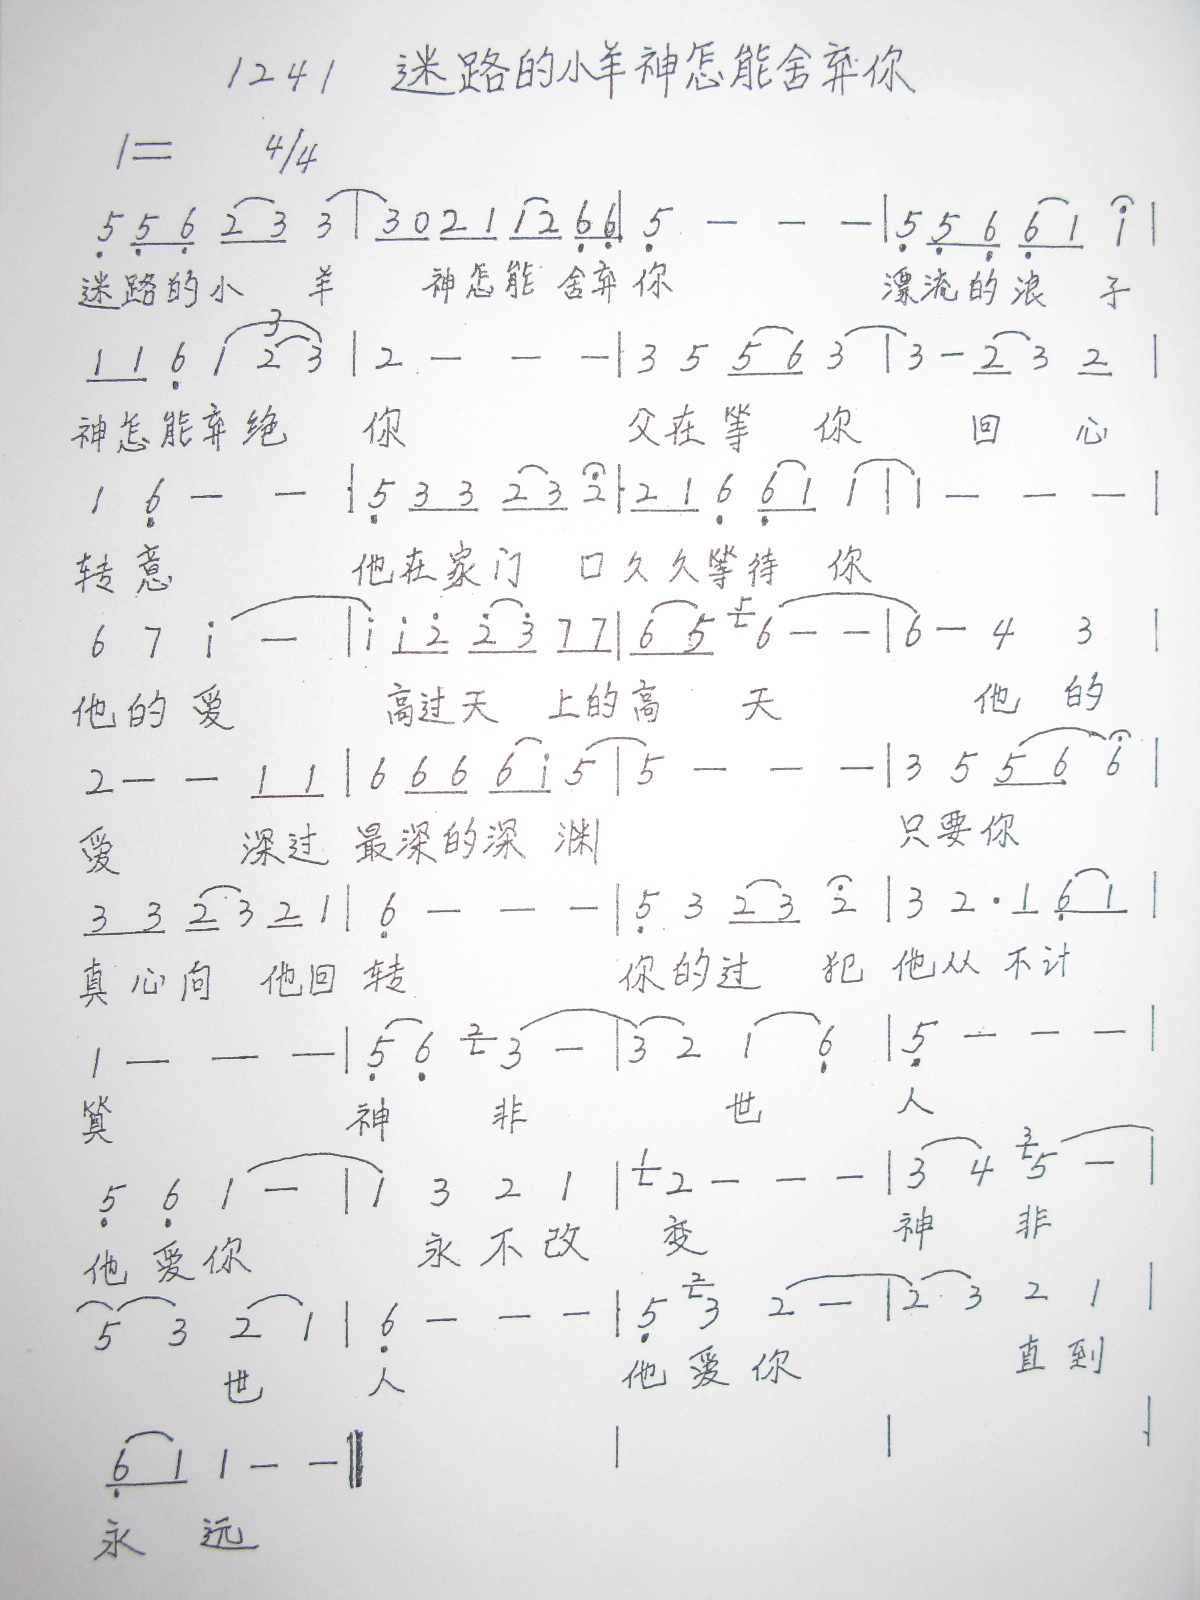 1241 迷路的小羊神怎能舍弃你
1= 4/4
5 5 6 2 3 3 | 3 0 2 1 1 2 6 6 | 5 — — — | 5 5 6 6 1 i |
迷路的小 羊 神怎能 舍弃 你 漂流的浪 子
3
1 1 6 1 2 3 | 2 — — — | 3 5 5 6 3 | 3 — 2 3 2 |
神怎能弃绝 你 父在等 你 回 心
1 6 — — | 5 3 3 2 3 2 | 2 1 6 6 1 1 | 1 — — — |
转意 他在家门 口久久等待 你
6 7 i — | i i 2 2 3 7 7 | 6 5 5 6 — — | 6 — 4 3 |
他的爱 高过天 上的高 天 他 的
2 — — 1 1 | 6 6 6 6 i 5 | 5 — — — | 3 5 5 6 6 |
爱 深过 最深的深 渊 只要你
3 3 2 3 2 1 | 6 — — — | 5 3 2 3 2 | 3 2 · 1 6 1 |
真心向 他回 转 你的过 犯 他从 不计
1 — — — | 5 6 2 3 — | 3 2 1 6 | 5 — — — |
算 神 非 世 人
5 6 1 — | 1 3 2 1 | 1 2 — — — | 3 4 3 5 — |
他爱你 永不改 变 神 非
5 3 2 1 | 6 — — — | 5 2 3 2 — | 2 3 2 1 |
世 人 他爱你 直到
6 1 1 — — ‖ | | |
永 远